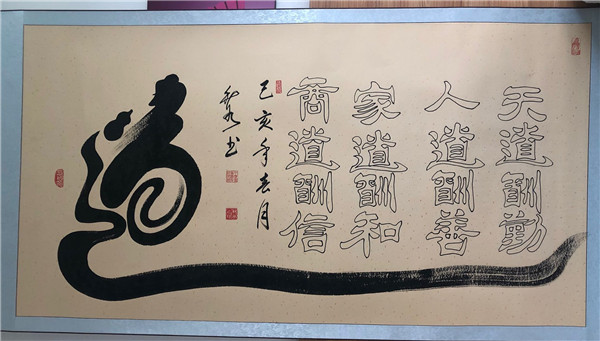 天道酬勤
人道酬善
家道酬和
商道酬信
己亥年春月
书
道